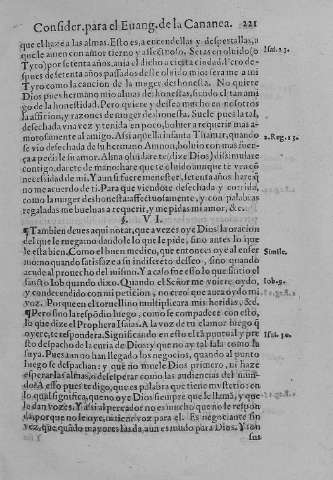 Consider. para el Euang. de la Cananea. 221
que el haze a las almas. Esto es, a encendellas y despertallas, a
que le amen con amor tierno y afectuoso. Seras en oluido (o
Tyro) por setenta años, ania el dicho a cierta ciudad. Pero des-
pues de setenta años passados deste oluido mio sera me a mi
Tyro como la cancion de la muger deshonesta. No quiere
Dios pues hermano mio almas deshonestas, siendo el tan ami
go de la honestidad. Pero quiere y desea mucho en nosotros
la aficion, y razones de muger deshonesta. Suele pues la tal,
desechada vna vez y tenida en poco, boluer a requerir mas a-
morosamente al amigo. Assi aquella infanta Thamar, quando
se vio desechada de su hermano Amnon, boluio con mas fuer-
ça a pedille su amor. Alma oluidare te (dize Dios) dissimulare
contigo, dare te de mano hare que te oluido aunque te vea en
necessidad de mi. Y aun si fuere menester, setenta años hare que
no me acuerdo de ti. Para que viendote desechada y corrida,
como la muger deshonesta affectuosamente, y con palabras
regaladas me bueluas a requerir, y me pidas mi amor, &c.
§. VI.
¶Tambien deues aqui notar, que a vezes oye Dios la oracion
del que le ruega no dandole lo que le pide, sino antes lo que
le esta bien. Como el buen medico, que entonces oye al enfer
mo no quando satisfaze a su indiscreto desseo, sino quando
acude al prouecho del mismo. Y a caso fue esto lo que sintio el
sancto Iob quando dixo. Quando el Señor me uuiere oydo,
y condecendido con mi peticion, no creeré que aura oydo mi
voz. Porque en el toruellino multiplicara mis heridas, &c.
¶Pero sino la respõdio luego, como se compadece con esto,
lo que dize el Propheta Isaias. A la voz de tu clamor luego q̃
oyere, te respondera. Significando en esto està puntual y pre
sto despacho de la curia de Dios, y que no ay tal fala como la
suya. Pues aun no han llegado los negocios, quando al punto
luego se despachan: y que no muele Dios primero, ni haze
esperar las almas, o desesperar como las audiencias del mun-
do. A esso pues te digo, que es palabra que tiene mysterio: en
lo qual significa, que no oye Dios siempre que le llamã, y que
le dan vozes. Y assi al pecador no es mucho que no le respon
da, porque no le oye, ni tiene voz para el. Es negociante sin
voz, que quãdo mayores las da, aun es mudo para Dios. Y son
sus
Isai. 23.
2. Reg. 13.
Simile.
Iob. 9.
Isai. 30.